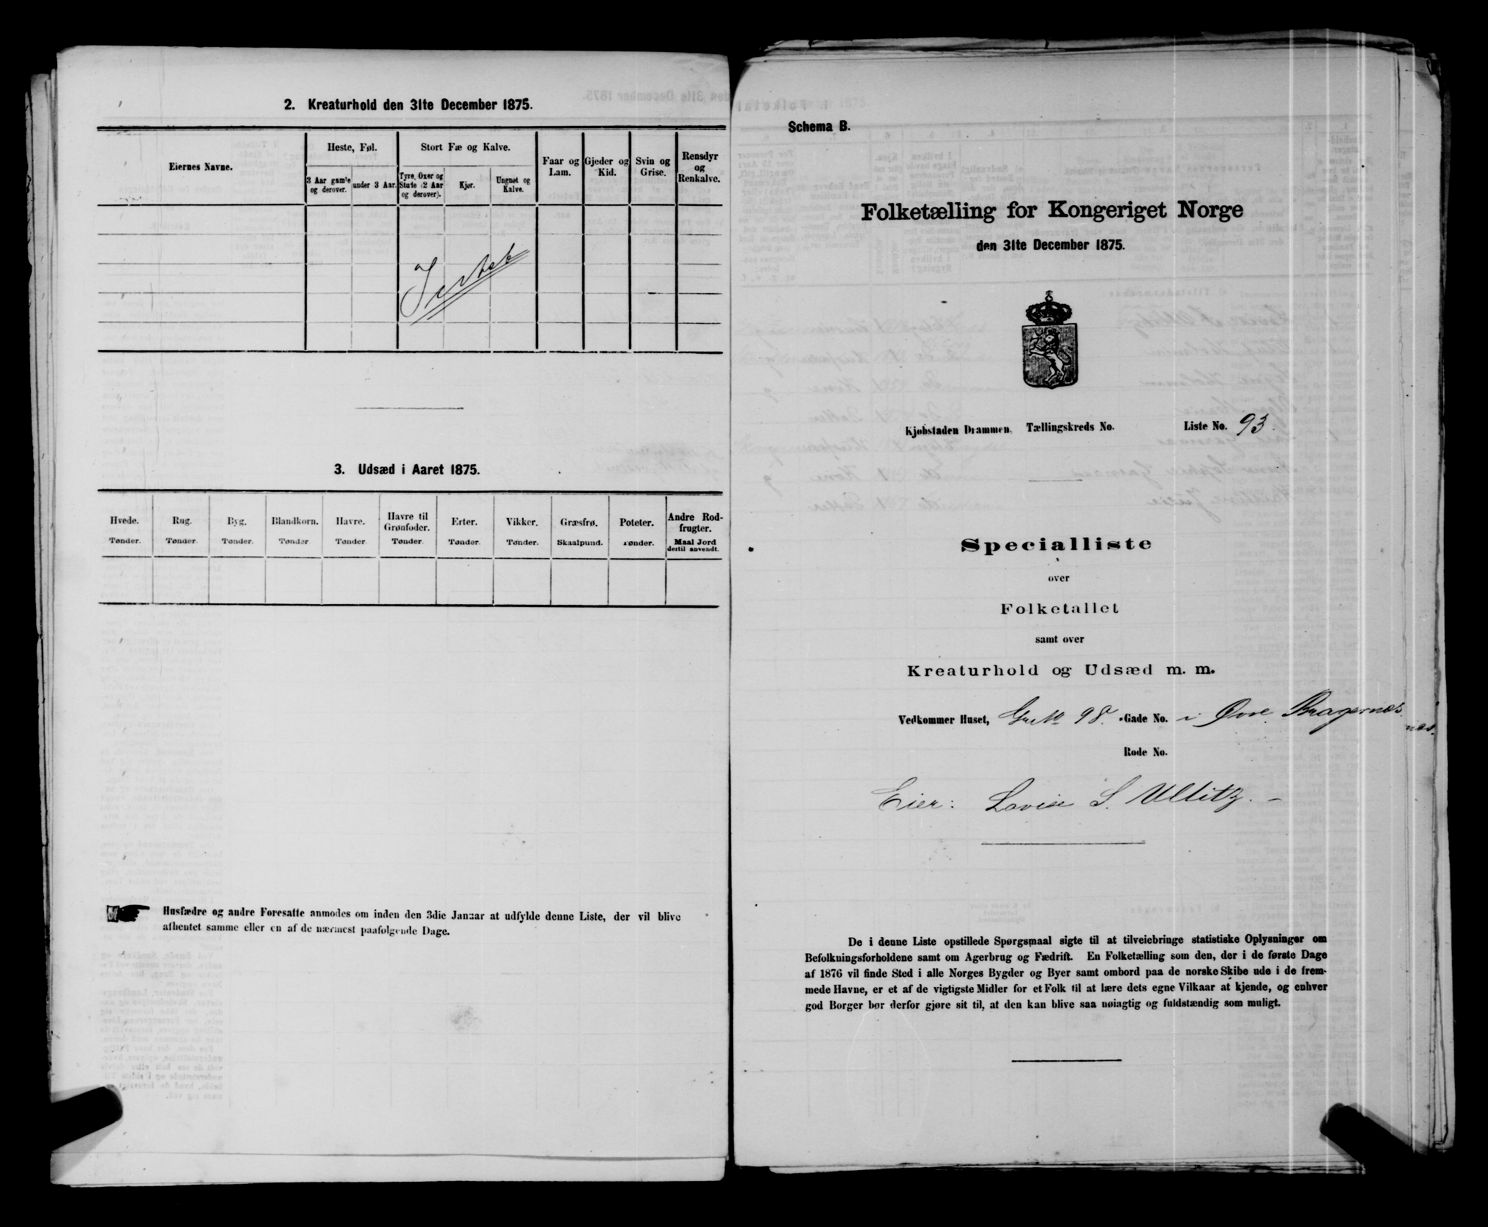 2. Kreaturhold den 31te December 1875.
Eiernes Navne.
Heste, Føl.
Stort Fæ og Kalve.
Faar og Lam.
Gjeder og Kid.
Svin og Grise.
Rensdyr og Renkalve.
3 Aar gamle og derover.
under 3 Aar.
Tyre, Oxer og Stude (2 Aar og derover).
Kjør.
Ungnøt og Kalve.
3. Udsæd i Aaret 1875.
Hvede. Rug. Byg. Blandkorn. Havre. Havre til Grønfoder. Erter. Vikker. Græsfrø. Poteter. Andre Rodfrugter.
Tønder. Tønder. Tønder. Tønder Tønder. Tønder. Tønder. Tønder. Skaalpund. Tønder. Maal Jord dertil anvendt.
Husfædre og andre Foresatte anmodes om inden den 3die Januar at udfylde denne Liste, der vil blive
afhentet samme eller en af de nærmest paafølgende Dage.
Schema B.
Folketælling for Kongeriget Norge
den 31te December 1875.
Kjøbstaden Drammen. Tællingskreds No. Liste No. 93.
Specialliste
over
Folketallet
samt over
Kreaturhold og Udsæd m. m.
Vedkommer Huset, Gr. No 98. Gade No. i Øvre Bragernæs
Rode No.
Eier: Lovise S. Ulditz. –
De i denne Liste opstillede Spørgsmaal sigte til at tilveiebringe statistiske Oplysninger om
Befolkningsforholdene samt om Agerbrug og Fædrift. En Folketælling som den, der i de første Dage
af 1876 vil finde Sted i alle Norges Bygder og Byer samt ombord paa de norske Skibe ude i de frem-
mede Havne, er et af de vigtigste Midler for et Folk til at lære dets egne Vilkaar at kjende, og enhver
god Borger bør derfor gjøre sit til, at den kan blive saa nøiagtig og fuldstændig som muligt.